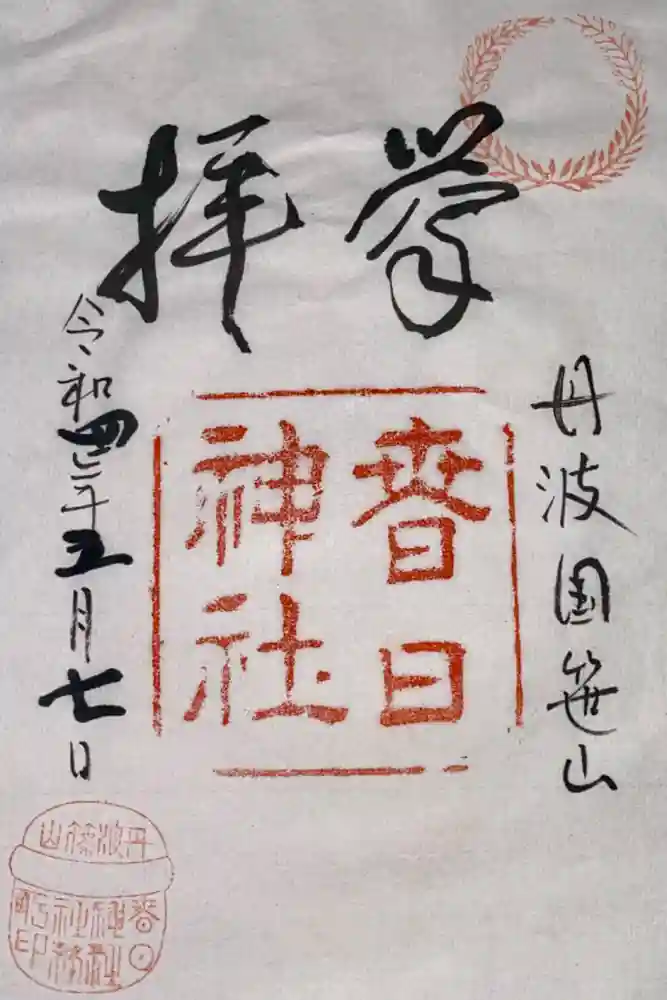 奉拝
丹波国笹山
春日
神社
令和四年五月七日
丹波篠山
春日
神社
社務
所印